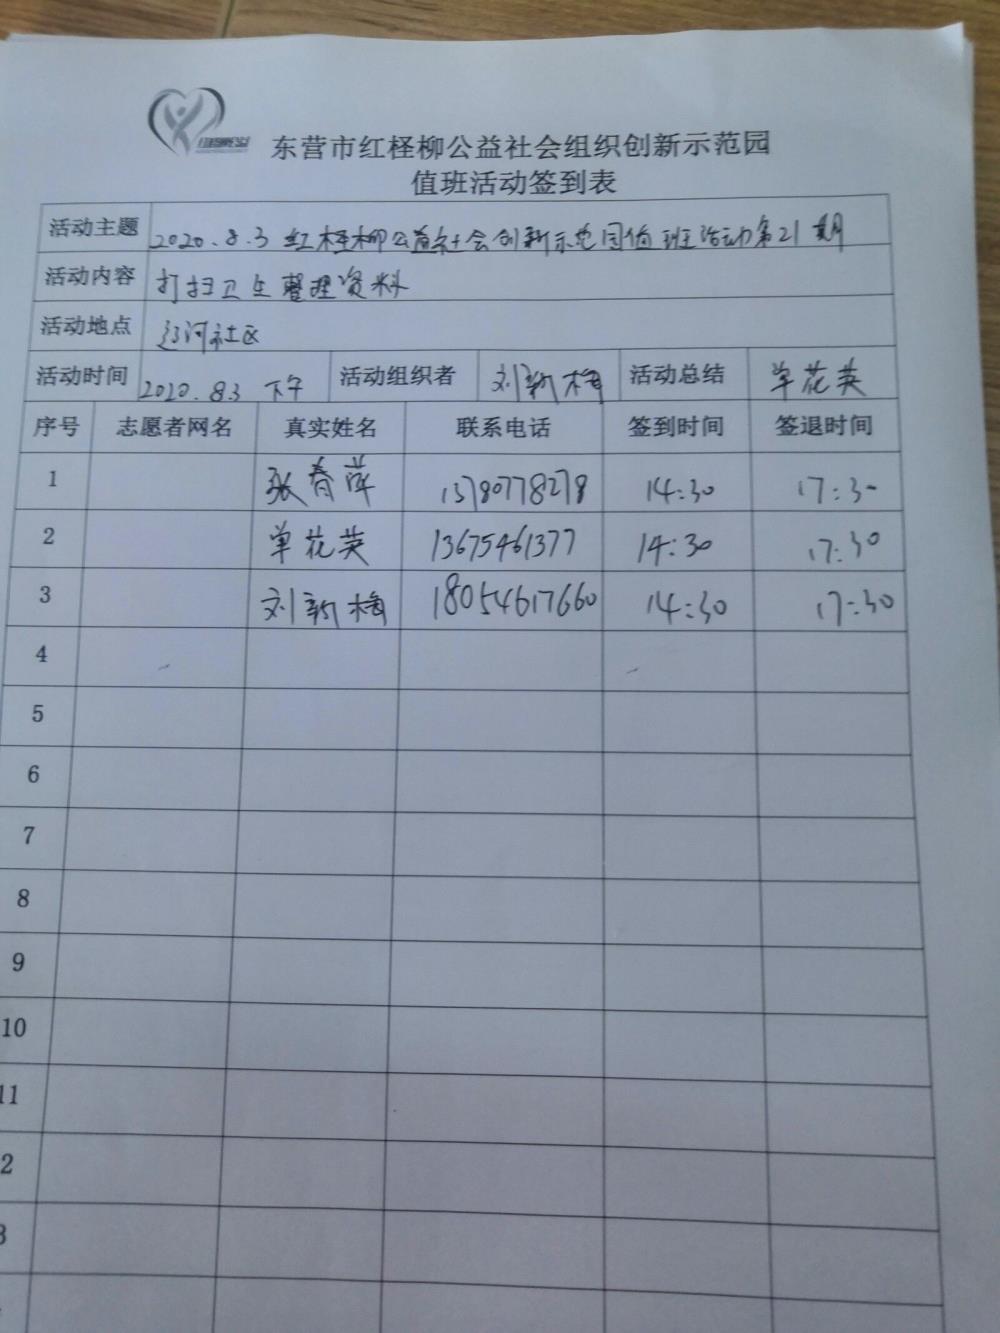 东营市红柽柳公益社会组织创新示范园
值班活动签到表
活动主题 2020.8.3 红柽柳公益社会创新示范园值班活动第21期
活动内容 打扫卫生整理资料
活动地点 辽河社区
活动时间 2020.8.3 下午 活动组织者 刘新梅 活动总结 单花英
序号 志愿者网名 真实姓名 联系电话 签到时间 签退时间
1 张春萍 13780778278 14:30 17:30
2 单花英 13675461377 14:30 17:30
3 刘新梅 18054617660 14:30 17:30
4
5
6
7
8
9
10
11
2
3